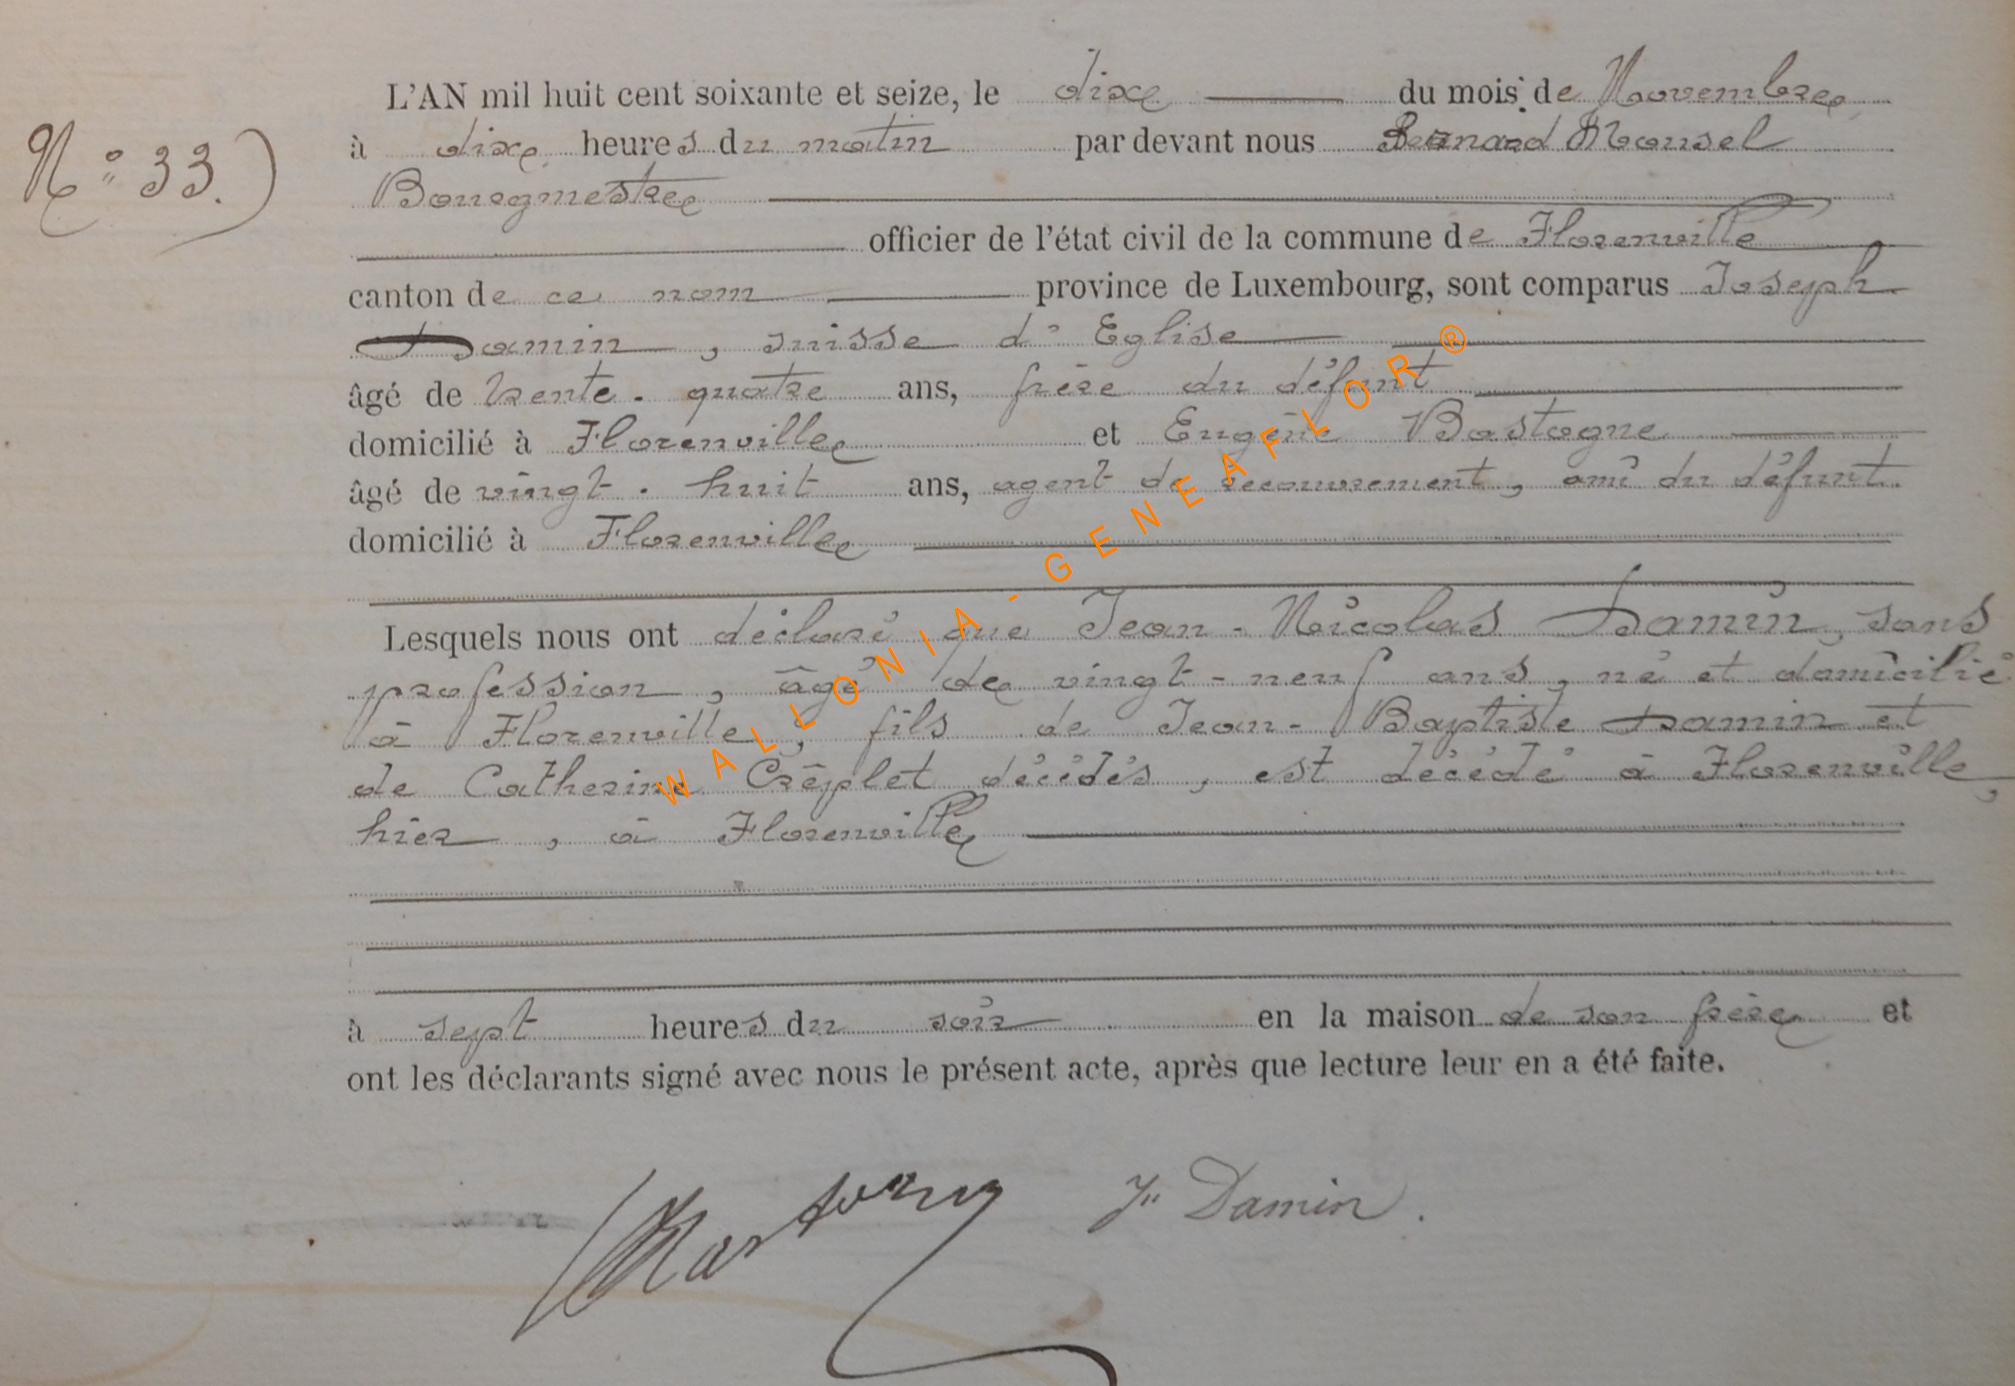 L'AN mil huit cent soixante et seize, le dix du mois de Novembre
N° 33.) à dix heures du matin par devant nous Bernard Mousel
Bourgmestre
officier de l'état civil de la commune de Florenville
canton de ce nom province de Luxembourg, sont comparus Joseph
Damin, suisse d'Eglise
âgé de trente-quatre ans, frère du défunt
domicilié à Florenville et Eugène Bastogne
âgé de vingt-huit ans, agent de recouvrement, ami du défunt
domicilié à Florenville
Lesquels nous ont déclaré que Jean-Nicolas Damin, sans
profession, âgé de vingt-neuf ans, né et domicilié
à Florenville, fils de Jean-Baptiste Damin et
de Catherine Créplet décédés, est décédé à Florenville,
hier, à Florenville
à sept heures du soir en la maison de son frère et
ont les déclarants signé avec nous le présent acte, après que lecture leur en a été faite.
Jh Damin.
WALLONIA - GENEAFLOR®